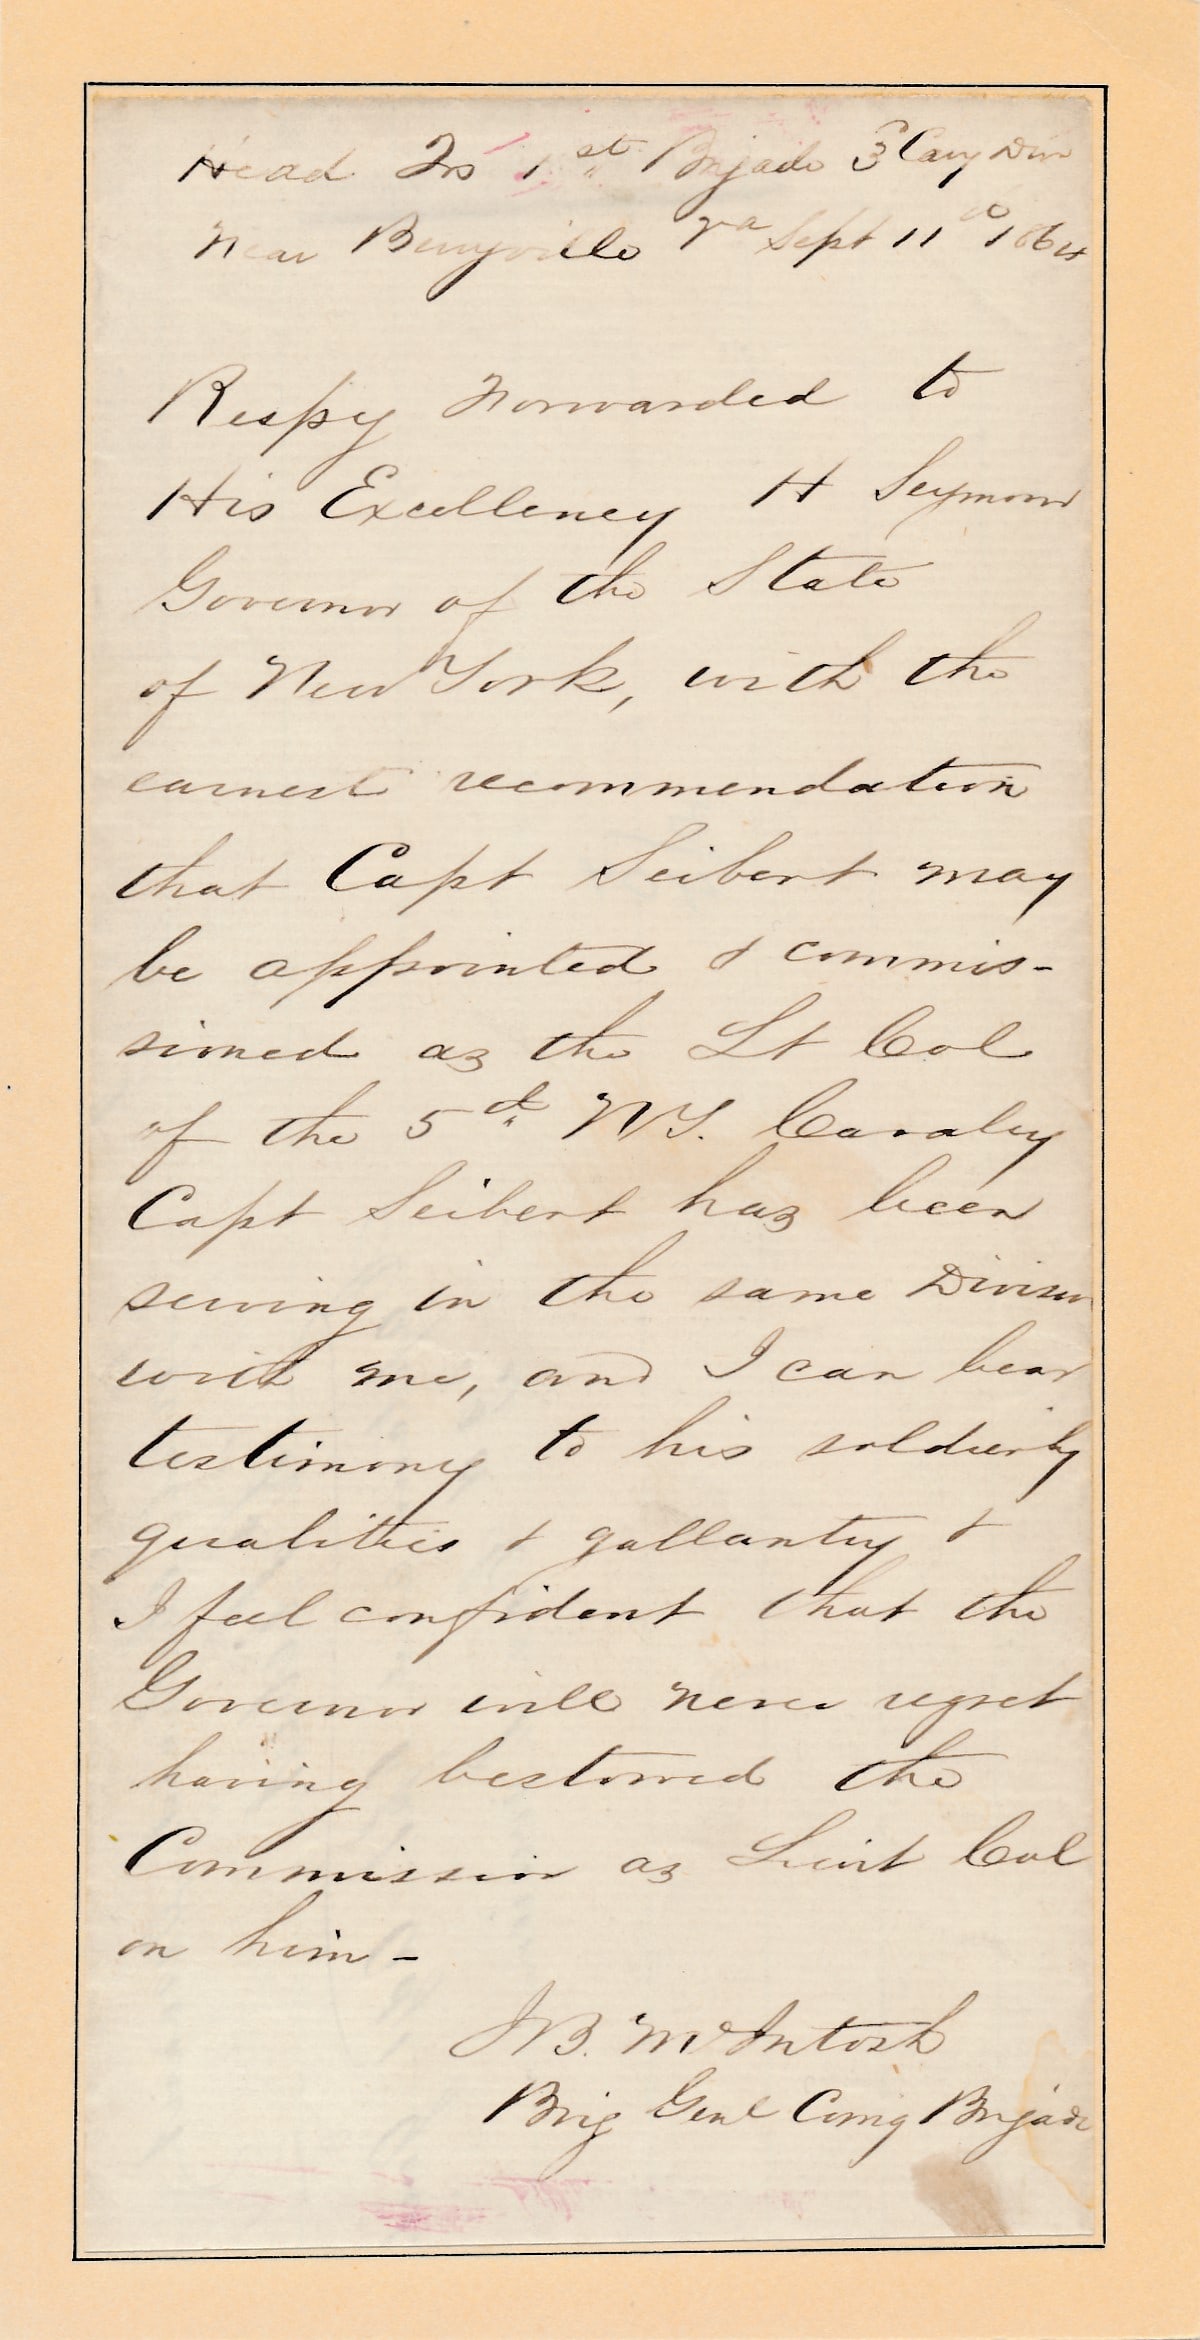 Head Qrs 1st Brigade 3d Cavy Div
Near Berryville Va Sept 11th 1864
Respy Forwarded to
His Excellency H Seymour
Governor of the State
of New York, with the
earnest recommendation
that Capt Seibert may
be appointed & commis-
sioned as the Lt Col
of the 5th NY. Cavalry
Capt Seibert has been
serving in the same Division
with me, and I can bear
testimony to his soldierly
qualities & gallantry &
I feel confident that the
Governor will never regret
having bestowed the
Commission as Lieut Col
on him -
J B. McIntosh
Brig Genl Comg Brigade